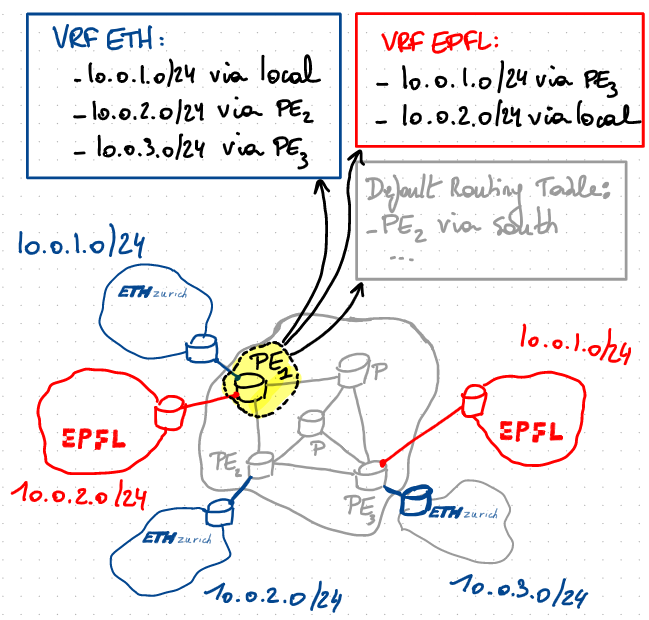 VRF ETH:
- 10.0.1.0/24 via local
- 10.0.2.0/24 via PE2
- 10.0.3.0/24 via PE3
VRF EPFL:
- 10.0.1.0/24 via PE3
- 10.0.2.0/24 via local
Default Routing Table:
- PE2 via south
...
10.0.1.0/24
ETH zürich
PE1
P
10.0.1.0/24
EPFL
EPFL
P
10.0.2.0/24
PE2
PE3
ETH zürich
ETH zürich
10.0.2.0/24
10.0.3.0/24